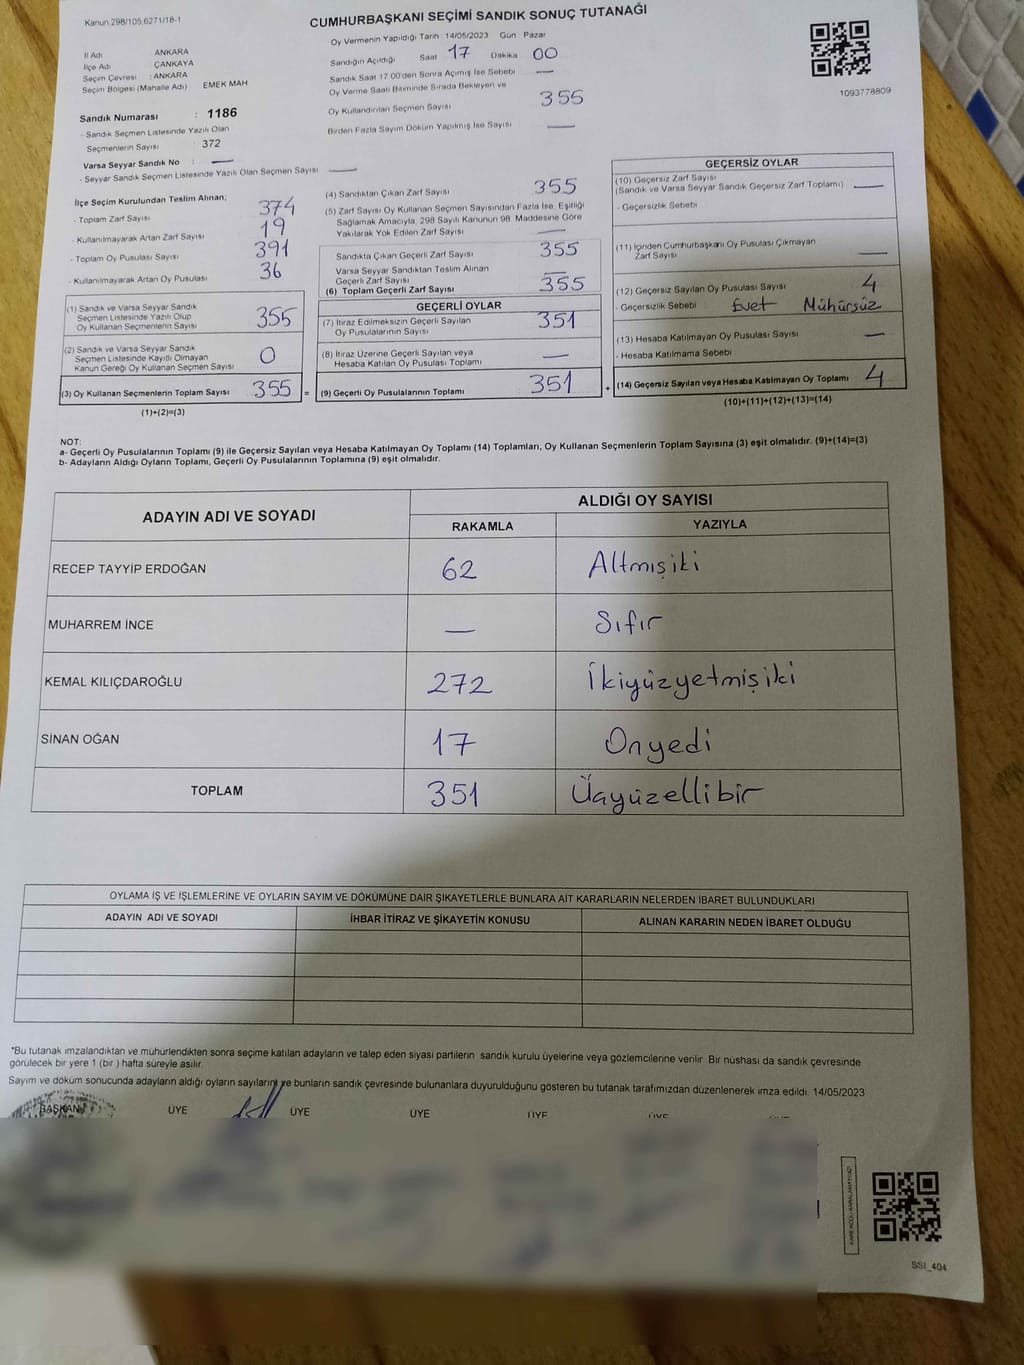 Kanun 298/105,6271/18-1
CUMHURBAŞKANI SEÇİMİ SANDIK SONUÇ TUTANAĞI
İl Adı ANKARA
İlçe Adı ÇANKAYA
Seçim Çevresi : ANKARA
Seçim Bölgesi (Mahalle Adı) EMEK MAH
Sandık Numarası : 1186
- Sandık Seçmen Listesinde Yazılı Olan
Seçmenlerin Sayısı 372
Varsa Seyyar Sandık No : —
- Seyyar Sandık Seçmen Listesinde Yazılı Olan Seçmen Sayısı —
Oy Vermenin Yapıldığı Tarih : 14/05/2023 Gün Pazar
Sandığın Açıldığı Saat 17 Dakika 00
Sandık Saat 17.00'den Sonra Açımış İse Sebebi —
Oy Verme Saati Bitiminde Sırada Bekleyen ve
Oy Kullandırılan Seçmen Sayısı 355
Birden Fazla Sayım Döküm Yapılmış İse Sayısı —
1093778809
İlçe Seçim Kurulundan Teslim Alınan;
- Toplam Zarf Sayısı 374
- Kullanılmayarak Artan Zarf Sayısı 19
- Toplam Oy Pusulası Sayısı 391
- Kullanılmayarak Artan Oy Pusulası 36
(1) Sandık ve Varsa Seyyar Sandık
Seçmen Listesinde Yazılı Olup
Oy Kullanan Seçmenlerin Sayısı 355
(2) Sandık ve Varsa Seyyar Sandık
Seçmen Listesinde Kayıtlı Olmayan
Kanun Gereği Oy Kullanan Seçmen Sayısı 0
(3) Oy Kullanan Seçmenlerin Toplam Sayısı 355 =
(1)+(2)=(3)
(4) Sandıktan Çıkan Zarf Sayısı 355
(5) Zarf Sayısı Oy Kullanan Seçmen Sayısından Fazla İse, Eşitliği
Sağlamak Amacıyla, 298 Sayılı Kanunun 98. Maddesine Göre
Yakılarak Yok Edilen Zarf Sayısı —
Sandıkta Çıkan Geçerli Zarf Sayısı 355
Varsa Seyyar Sandıktan Teslim Alınan
Geçerli Zarf Sayısı —
(6) Toplam Geçerli Zarf Sayısı 355
GEÇERLİ OYLAR
(7) İtiraz Edilmeksizin Geçerli Sayılan
Oy Pusulalarının Sayısı 351
(8) İtiraz Üzerine Geçerli Sayılan veya
Hesaba Katılan Oy Pusulası Toplamı —
(9) Geçerli Oy Pusulalarının Toplamı 351 +
GEÇERSİZ OYLAR
(10) Geçersiz Zarf Sayısı
(Sandık ve Varsa Seyyar Sandık Geçersiz Zarf Toplamı) —
- Geçersizlik Sebebi
(11) İçinden Cumhurbaşkanı Oy Pusulası Çıkmayan
Zarf Sayısı —
(12) Geçersiz Sayılan Oy Pusulası Sayısı 4
- Geçersizlik Sebebi Evet Mühürsüz
(13) Hesaba Katılmayan Oy Pusulası Sayısı —
- Hesaba Katılmama Sebebi
(14) Geçersiz Sayılan veya Hesaba Katılmayan Oy Toplamı 4
(10)+(11)+(12)+(13)=(14)
NOT:
a- Geçerli Oy Pusulalarının Toplamı (9) ile Geçersiz Sayılan veya Hesaba Katılmayan Oy Toplamı (14) Toplamları, Oy Kullanan Seçmenlerin Toplam Sayısına (3) eşit olmalıdır. (9)+(14)=(3)
b- Adayların Aldığı Oyların Toplamı, Geçerli Oy Pusulalarının Toplamına (9) eşit olmalıdır.
ADAYIN ADI VE SOYADI ALDIĞI OY SAYISI
RAKAMLA YAZIYLA
RECEP TAYYİP ERDOĞAN 62 Altmışiki
MUHARREM İNCE — Sıfır
KEMAL KILIÇDAROĞLU 272 İkiyüzyetmişiki
SİNAN OĞAN 17 Onyedi
TOPLAM 351 Üçyüzellibir
OYLAMA İŞ VE İŞLEMLERİNE VE OYLARIN SAYIM VE DÖKÜMÜNE DAİR ŞİKAYETLERLE BUNLARA AİT KARARLARIN NELERDEN İBARET BULUNDUKLARI
ADAYIN ADI VE SOYADI İHBAR İTİRAZ VE ŞİKAYETİN KONUSU ALINAN KARARIN NEDEN İBARET OLDUĞU
*Bu tutanak imzalandıktan ve mühürlendikten sonra seçime katılan adayların ve talep eden siyasi partilerin sandık kurulu üyelerine veya gözlemcilerine verilir Bir nüshası da sandık çevresinde
görülecek bir yere 1 (bir ) hafta süreyle asılır.
Sayım ve döküm sonucunda adayların aldığı oyların sayılarını ve bunların sandık çevresinde bulunanlara duyurulduğunu gösteren bu tutanak tarafımızdan düzenlenerek imza edildi. 14/05/2023
BAŞKAN ÜYE ÜYE ÜYE ÜYE ÜYE
SSI_404